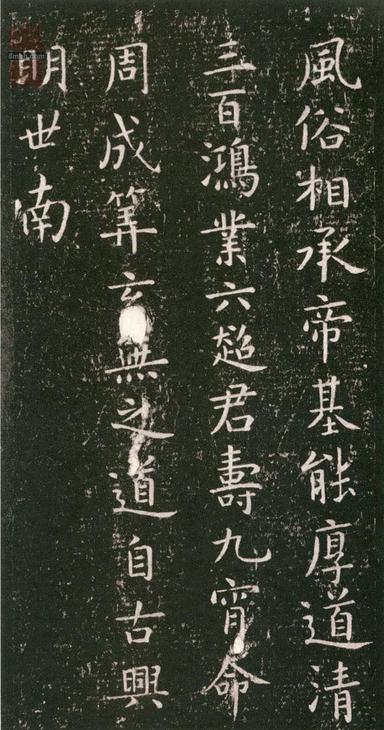 風俗相承帝基能厚道清
三百鴻業六超君壽九霄命
周成筭玄無之道自古興
明世南